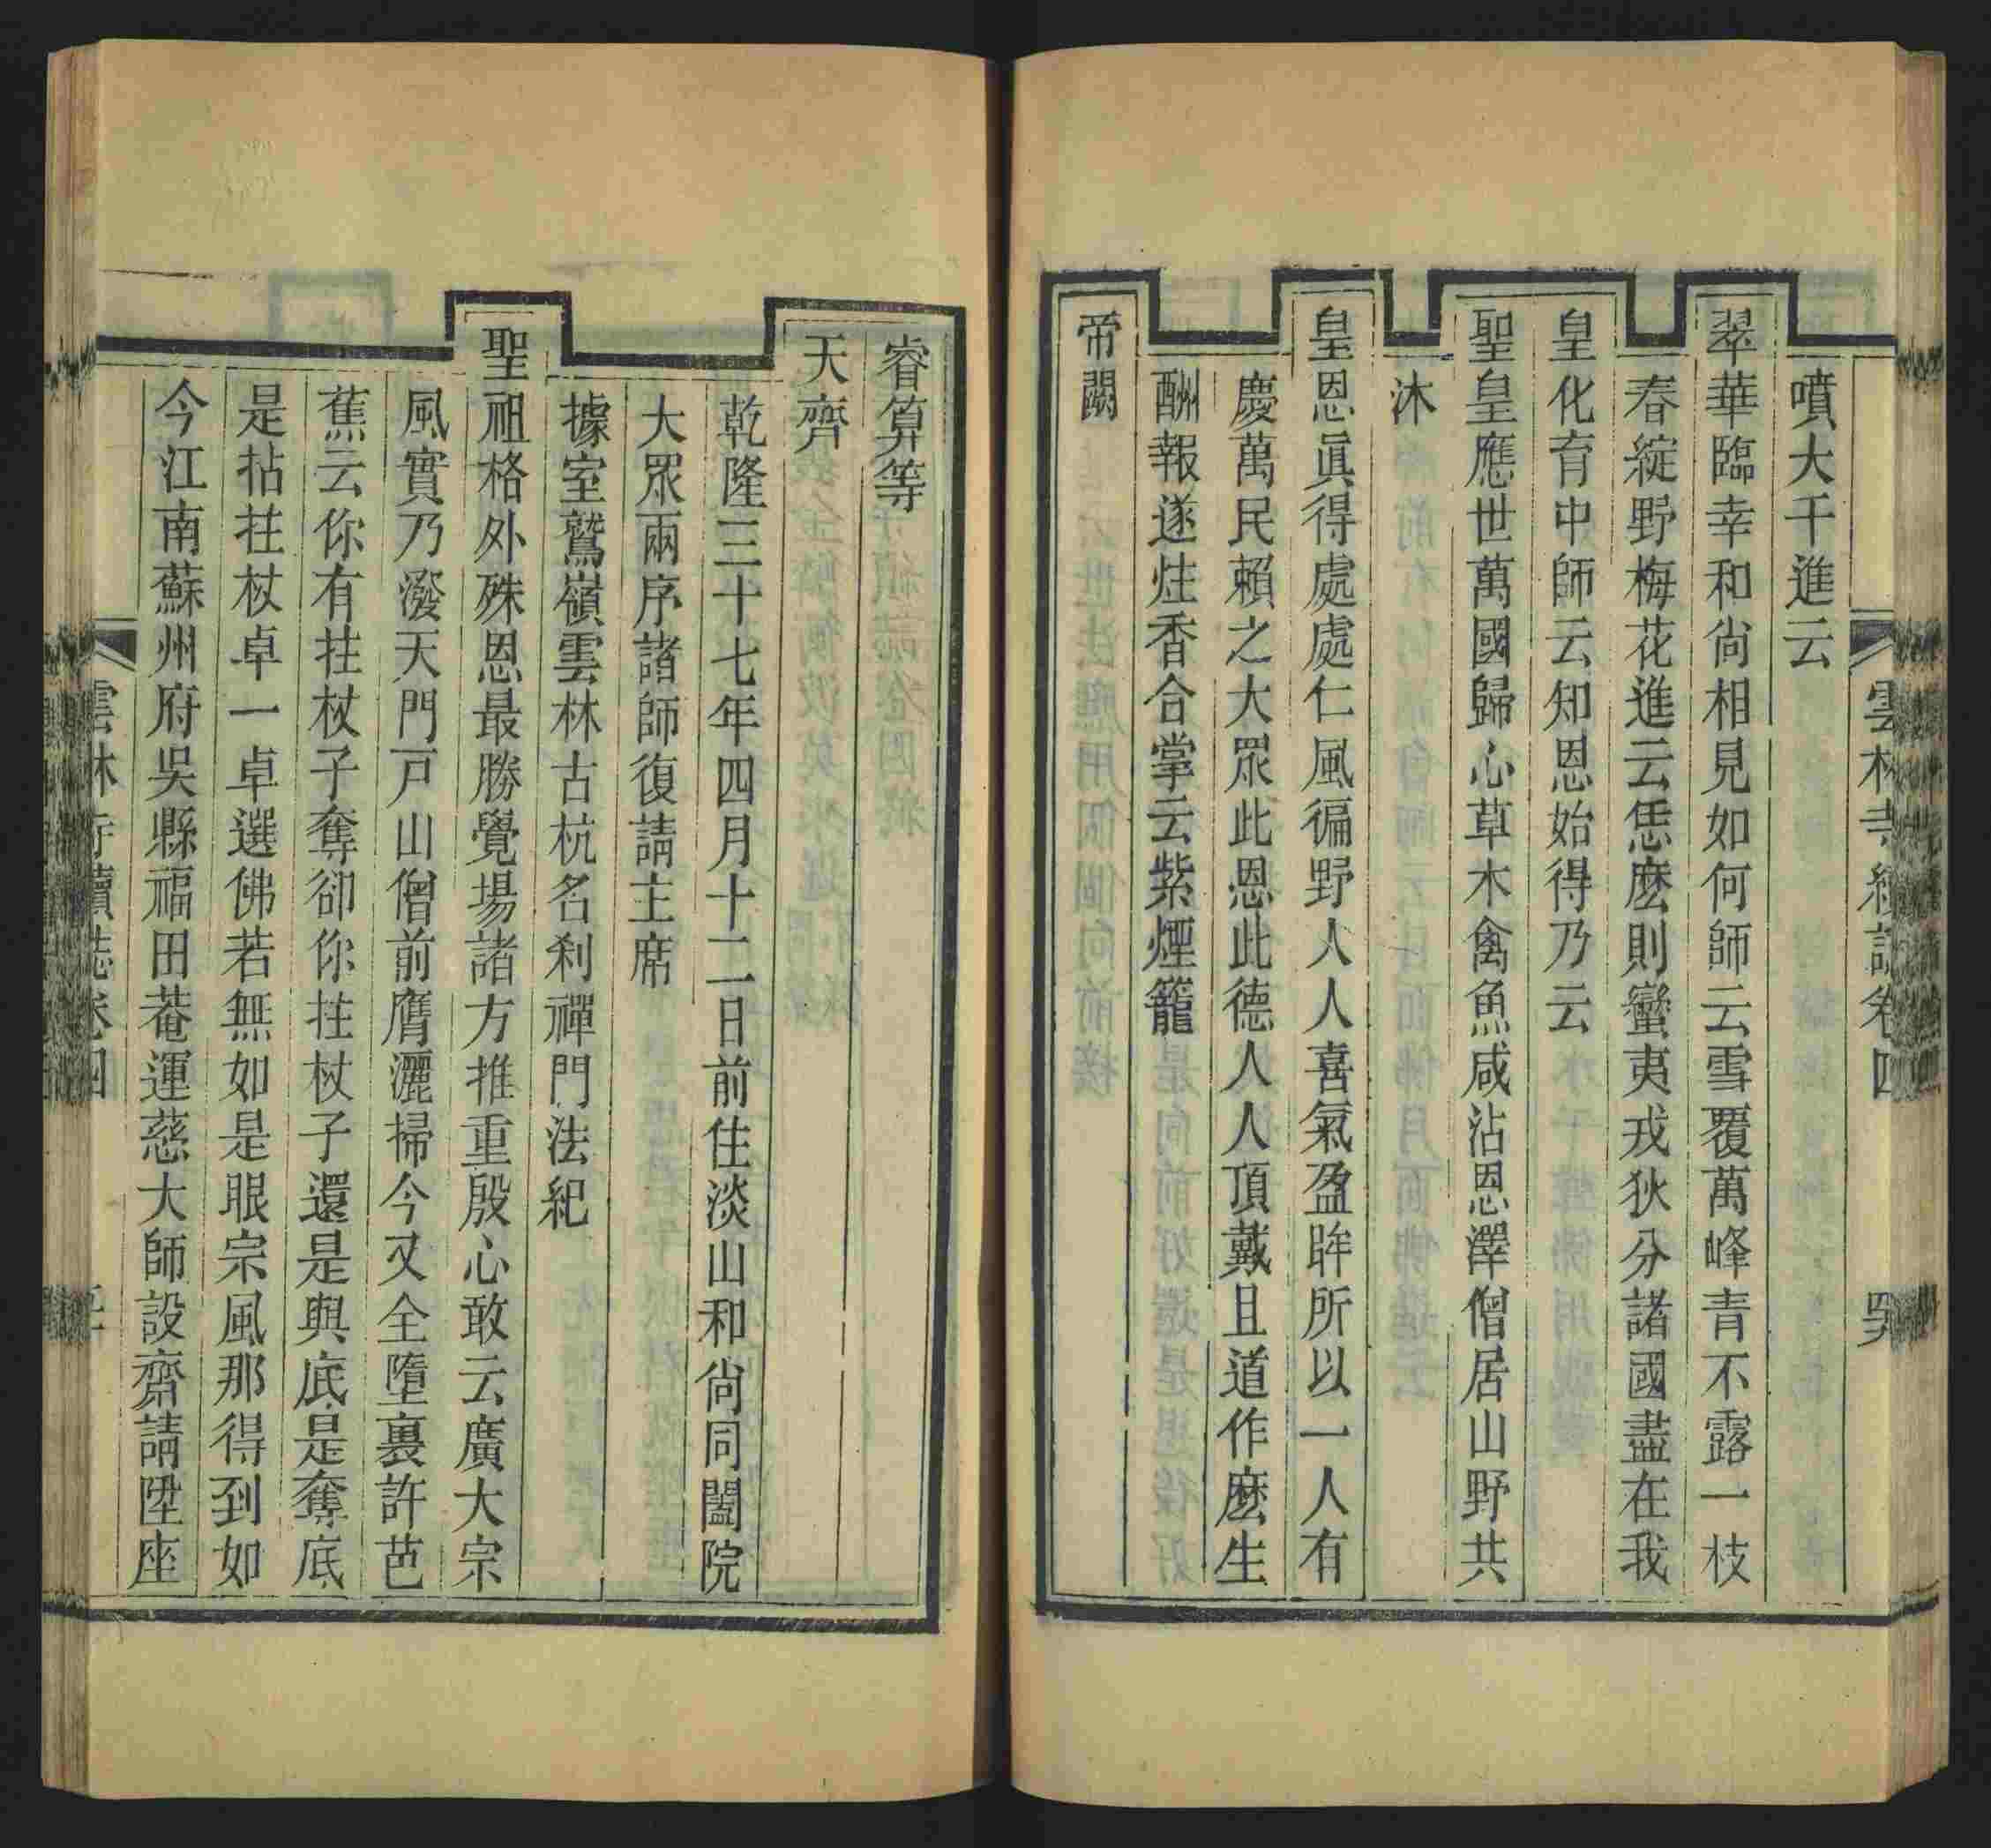 雲林寺續誌卷四
噴大千進云
翠華臨幸和尙相見如何師云雪覆萬峰青不露一枝
春綻野梅花進云恁麽則蠻夷戎狄分諸國盡在我
皇化育中師云知恩始得乃云
聖皇應世萬國歸心草木禽魚咸沾恩澤僧居山野共
沐
皇恩眞得處處仁風徧野人人喜氣盈眸所以一人有
慶萬民賴之大眾此恩此德人人頂戴且道作麽生
酬報遂炷香合掌云紫煙籠
帝闕
睿筭等
天齊
乾隆三十七年四月十二日前住淡山和尙同闔院
大眾兩序諸師復請主席
據室鷲嶺雲林古杭名刹禪門法紀
聖祖格外殊恩最勝覺場諸方推重殷心敢云廣大宗
風實乃潑天門戸山僧前膺灑掃今又全墮裏許芭
蕉云你有拄杖子奪卻你拄杖子還是與底是奪底
是拈拄杖卓一卓選佛若無如是眼宗風那得到如
今江南蘇州府吳縣福田菴運慈大師設齋請陞座
雲林寺續誌卷四